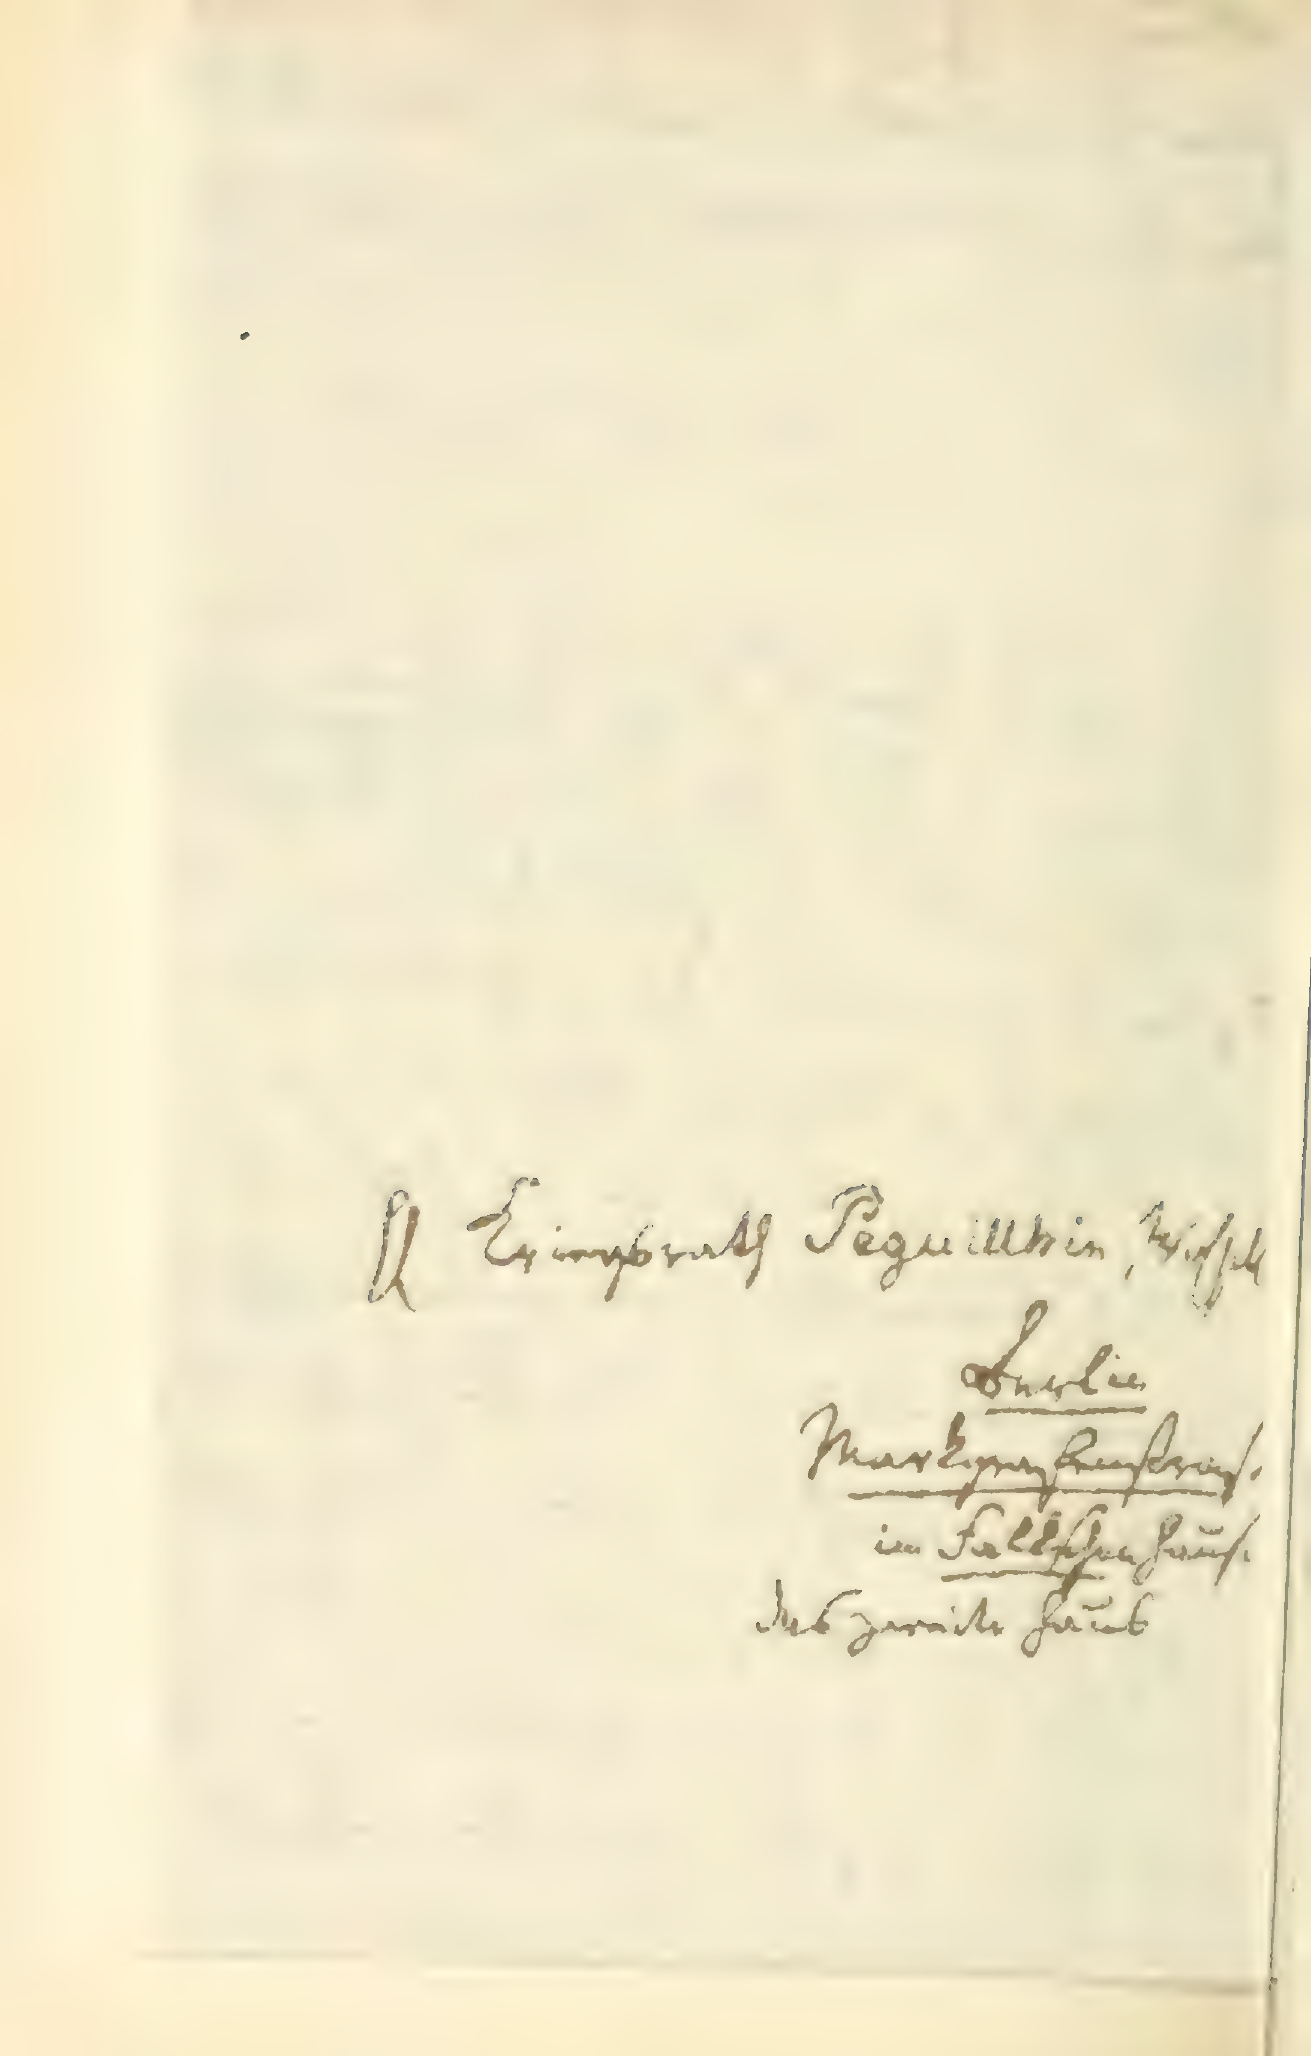 H Kriegsrath Peguilhin,
Berlin
Markgrafenstraß.
im Falkschen Hause.
das zweite Haus